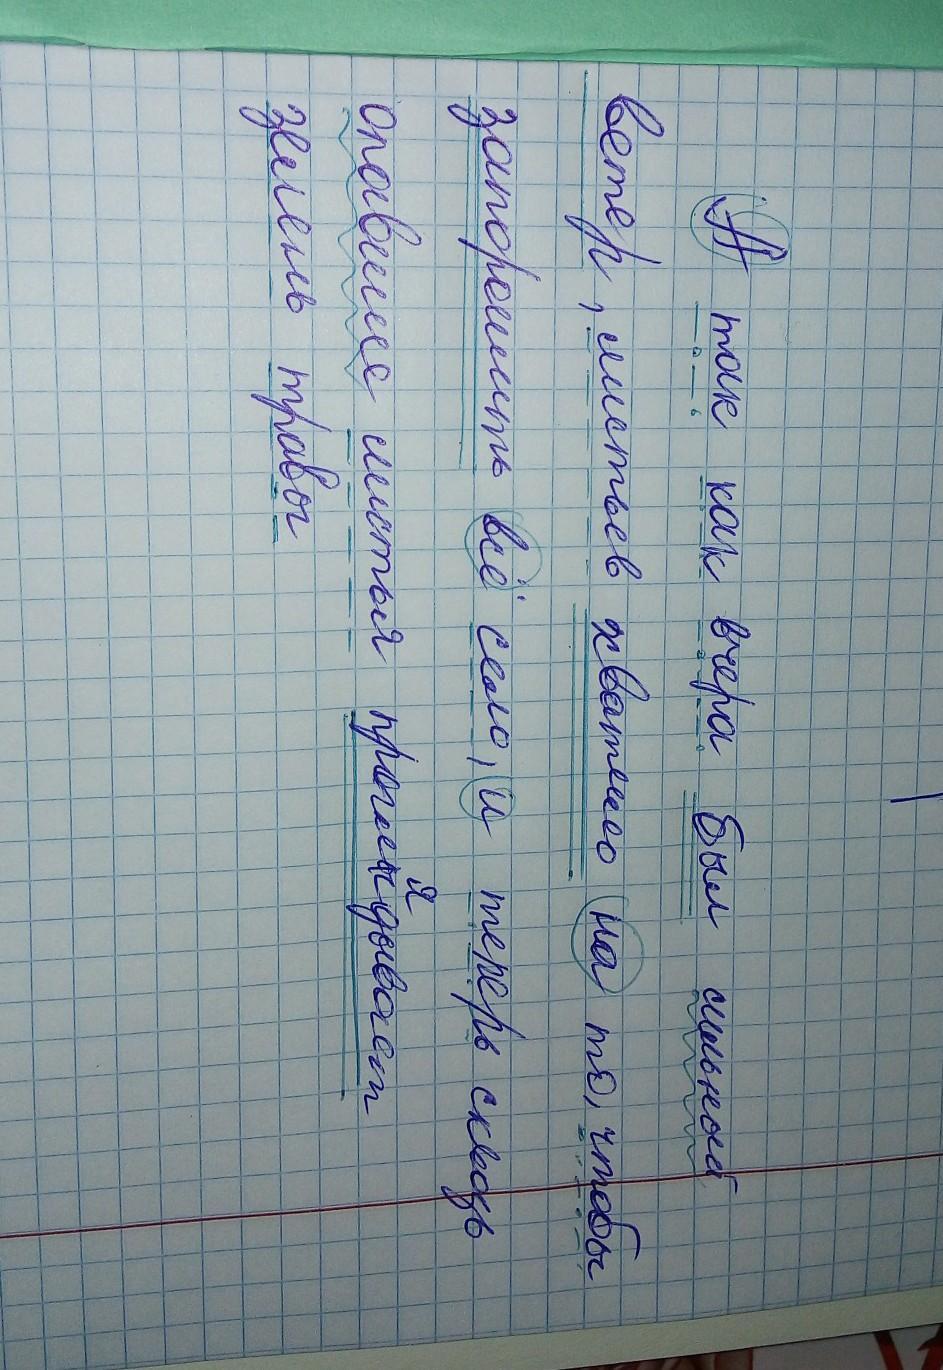 А так как вчера был сильный
ветер, листьев хватило на то, чтобы
запорошить всё село, и теперь сквозь
опавшие листья проглядывает
зелень травы